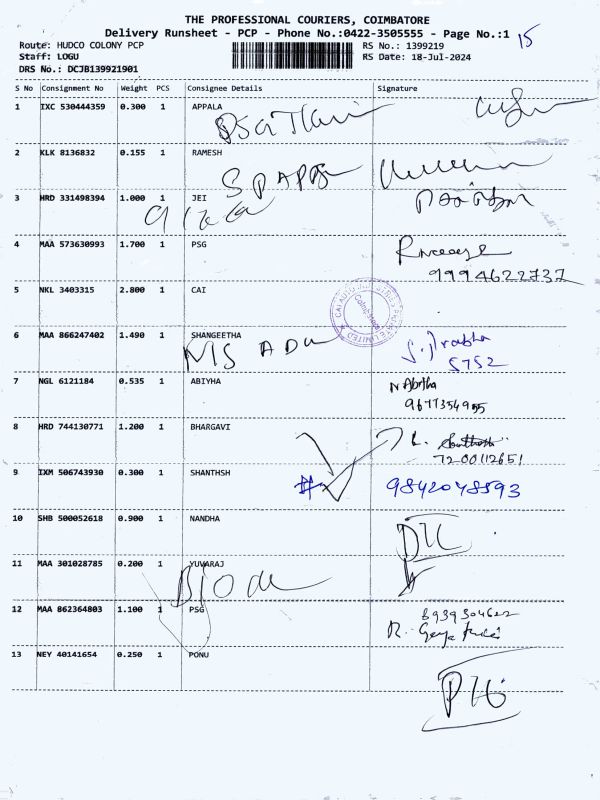 THE PROFESSIONAL COURIERS, COIMBATORE
Delivery Runsheet - PCP - Phone No.:0422-3505555 - Page No.:1 15
Route: HUDCO COLONY PCP RS No.: 1399219
Staff: LOGU RS Date: 18-Jul-2024
DRS No.: DCJB139921901
S No Consignment No Weight PCS Consignee Details Signature
1 IXC 530444359 0.300 1 APPALA
2 KLK 8136832 0.155 1 RAMESH
3 HRD 331498394 1.000 1 JEI
4 MAA 573630993 1.700 1 PSG
9994622737
5 NKL 3403315 2.800 1 CAI
6 MAA 866247402 1.490 1 SHANGEETHA
5752
7 NGL 6121184 0.535 1 ABIYHA
9677354955
8 HRD 744130771 1.200 1 BHARGAVI
7200112651
9 IXM 506743930 0.300 1 SHANTHSH 9842048593
10 SHB 500052618 0.900 1 NANDHA
11 MAA 301028785 0.200 1 YUVARAJ
12 MAA 862364803 1.100 1 PSG
8939304622
13 NEY 40141654 0.250 1 PONU